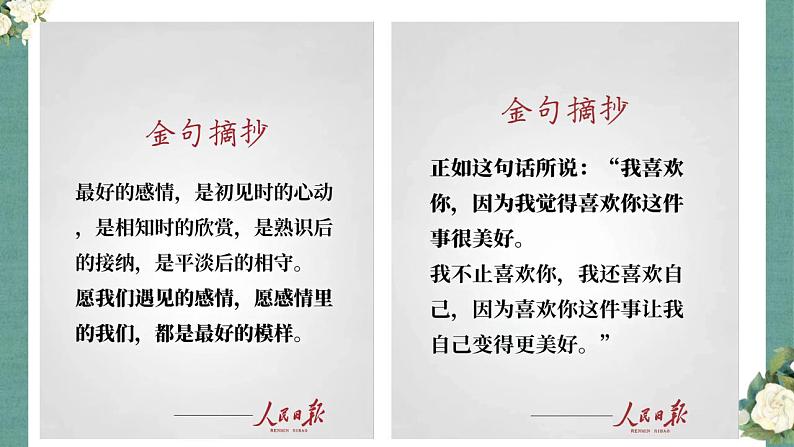 金句摘抄
最好的感情，是初见时的心动
，是相知时的欣赏，是熟识后
的接纳，是平淡后的相守。
愿我们遇见的感情，愿感情里
的我们，都是最好的模样。
人民日报
RENMIN RIBAO
金句摘抄
正如这句话所说：“我喜欢
你，因为我觉得喜欢你这件
事很美好。
我不止喜欢你，我还喜欢自
己，因为喜欢你这件事让我
自己变得更美好。”
人民日报
RENMIN RIBAO